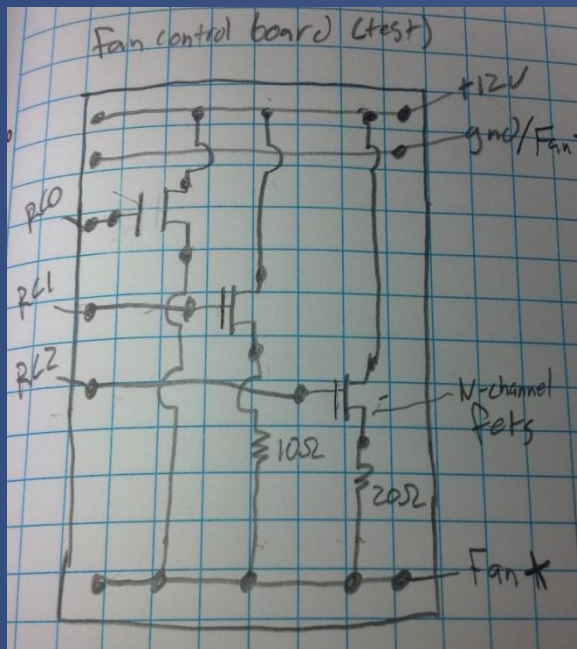 Fan control board (test)
+12V
gnd/Fan-
RC0
RC1
RC2
N-channel
fets
10Ω
20Ω
Fan +